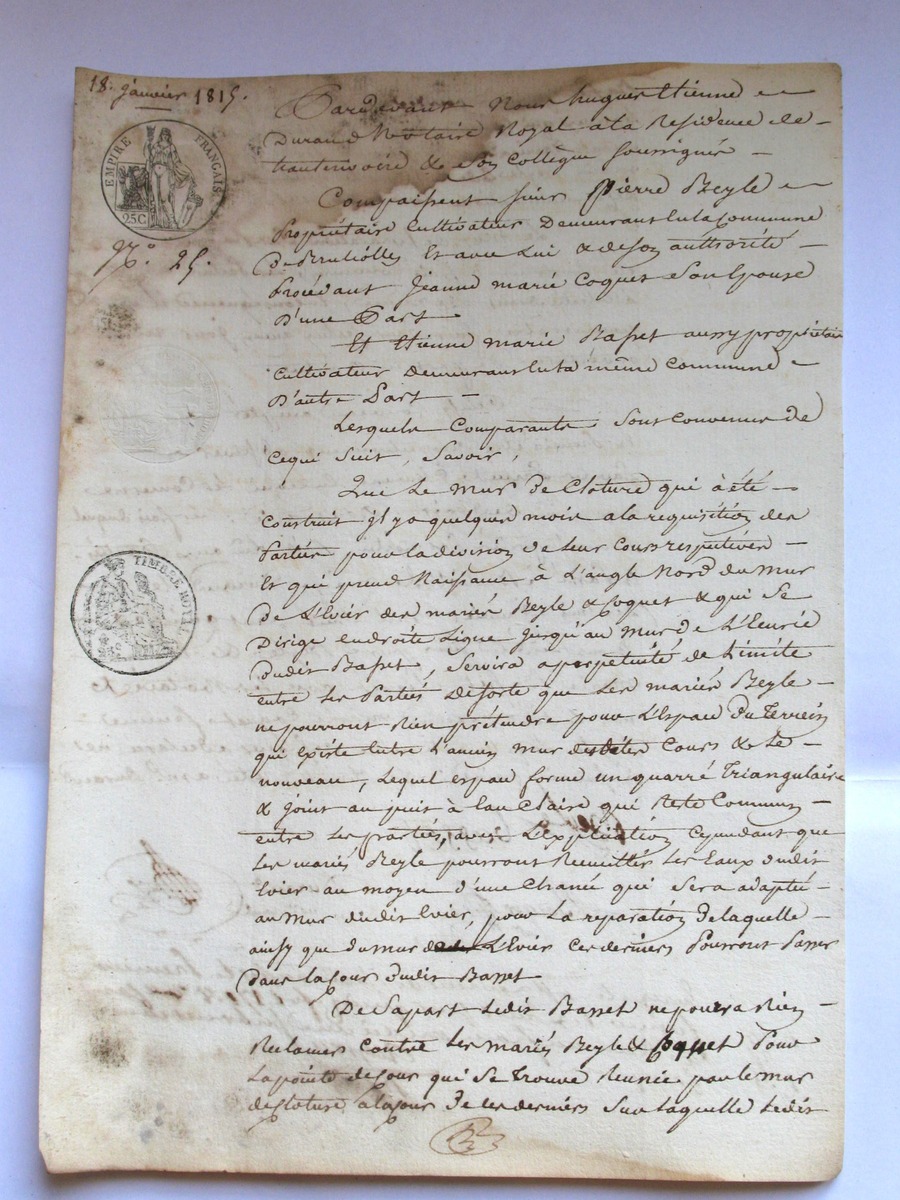 18. janvier 1815.
EMPIRE FRANÇAIS
25C
N.° 25.
TIMBRE ROYAL
25C
Pardevant Nous hugues Etienne
Durand Notaire Royal à la Residence de
hauterivoire & Son Collègue Soussignés
Comparissent sieur pierre Beyle
Propriétaire Cultivateur Demeurant en la Commune
De Brulliolles Et avec Lui & de Son authorité
Procédant Jeanne marie Coquet Son Epouse
D'une Part
Et Etienne marie Basset aussy propriétaire
Cultivateur Demeurant en la même Commune
D'autre Part
Lesquels Comparants Sont Convenus de
Ce qui Suit, Savoir,
Que Le mur De Cloture qui à été
Construit jl y a quelques mois a la requisition des
Parties pour la division de Leur Cours respectives
Et qui prend Naissance à L'angle Nord du mur
De L'Evier des mariés Beyle & Coquet & qui Se
Dirige en droite Ligne jusqu'au mur de L'Ecurie
Dudit Basset, Servira a perpetuité de Limite
entre Les Parties De sorte que Les mariés Beyle
ne pourront Rien prétendre pour L'Espace Du Terrein
qui Existe Entre L'ancien mur desdites Cours & Le
nouveau, Lequel espace forme un quarré Triangulaire
& Joint au puit à Eau Claire qui Reste Commun
entre Les parties, avec L'explication Cependant que
Les mariés Beyle pourront Recueillir Les Eaux dudit
Evier au moyen d'une Chanée qui Sera adaptée
au mur dudit Evier, pour La reparation De laquelle
ainsy que du mur de L'Evier Ces derniers Pourront Passer
Dans la Cour Dudit Basset
De Sa part Ledit Basset ne pourra Rien
Reclamer Contre Les mariés Beyle & Coquet Pour
La pointe de Cour qui Se Trouve Reunie par le mur
de Cloture à la Cour De Ces derniers Sur Laquelle Ledit